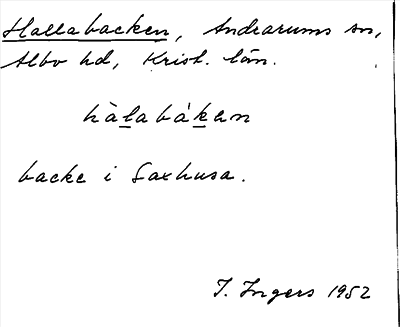 Hallabacken, Andrarums sn,
Albo hd, Krist. län.
hàlabákan
backe i Saxhusa.
I. Ingers 1952